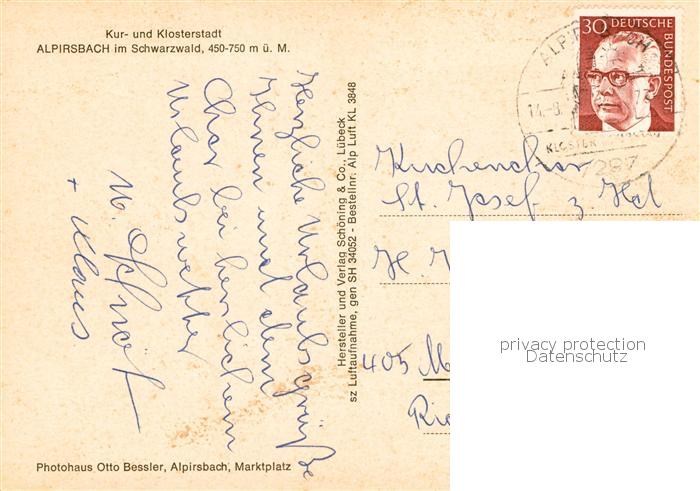 Kur- und Klosterstadt
ALPIRSBACH im Schwarzwald, 450-750 m ü. M.
Herzliche Urlaubsgrüße
Ihnen und dem
Chor bei herrlichem
Urlaubswetter
+ Klaus
Photohaus Otto Bessler, Alpirsbach, Marktplatz
Hersteller und Verlag Schöning & Co., Lübeck
sz Luftaufnahme, gen SH 34052 - Bestellnr. Alp Luft KL 3848
30 DEUTSCHE
BUNDESPOST
14.-8.
KLOSTER
7297
Kirchenchor
St. Josef z Hd
H.
405 M
Rie
privacy protection
Datenschutz